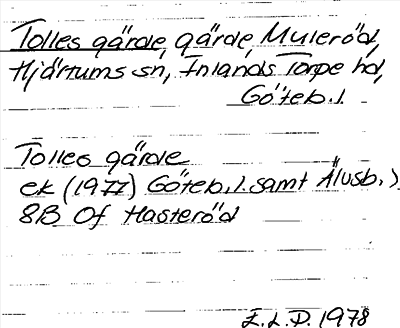 Tolles gärde, gärde, Muleröd,
Hjärtums sn, Inlands Torpe hd,
Göteb. l.
Tolles gärde
ek (1977) Göteb. l. samt Älvsb. l
8B 0f Hasteröd
E.L.P. 1978